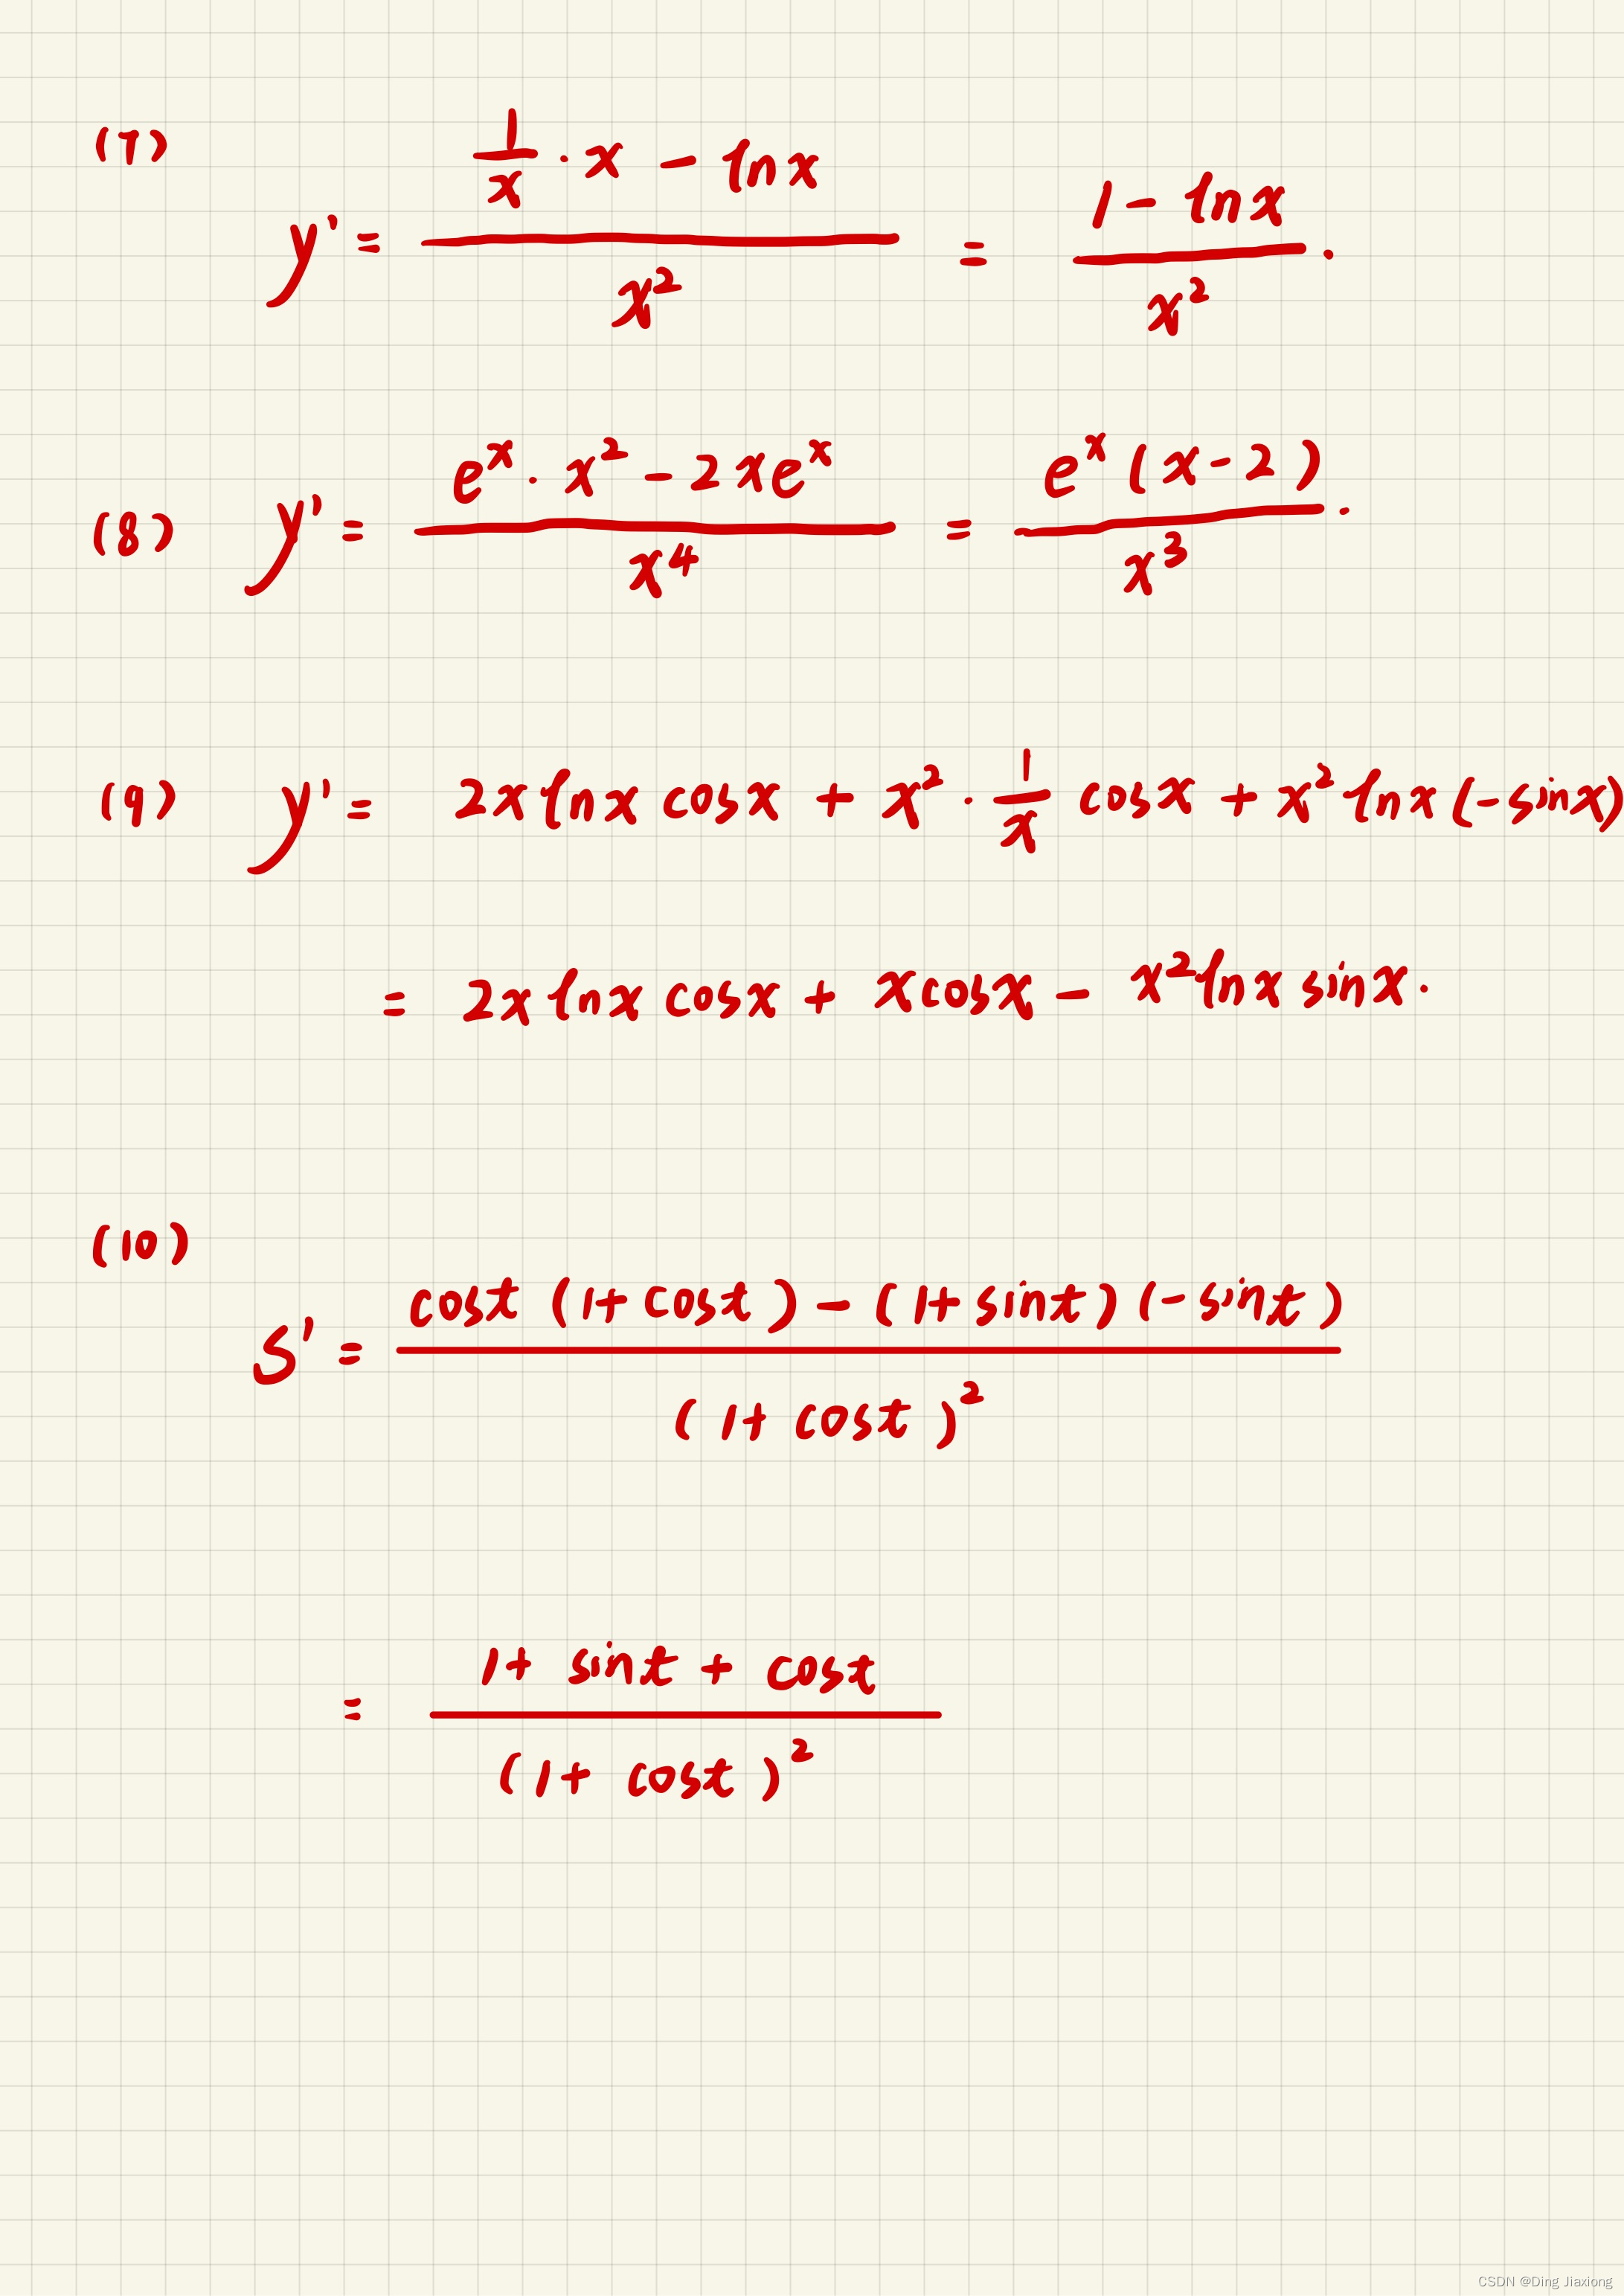 (7) y' = \frac{\frac{1}{x} \cdot x - \ln x}{x^2} = \frac{1 - \ln x}{x^2}.
(8) y' = \frac{e^x \cdot x^2 - 2xe^x}{x^4} = \frac{e^x(x-2)}{x^3}.
(9) y' = 2x \ln x \cos x + x^2 \cdot \frac{1}{x} \cos x + x^2 \ln x (-\sin x)
= 2x \ln x \cos x + x \cos x - x^2 \ln x \sin x.
(10)
s' = \frac{\cos t (1 + \cos t) - (1 + \sin t)(-\sin t)}{(1 + \cos t)^2}
= \frac{1 + \sin t + \cos t}{(1 + \cos t)^2}
CSDN @Ding Jiaxiong